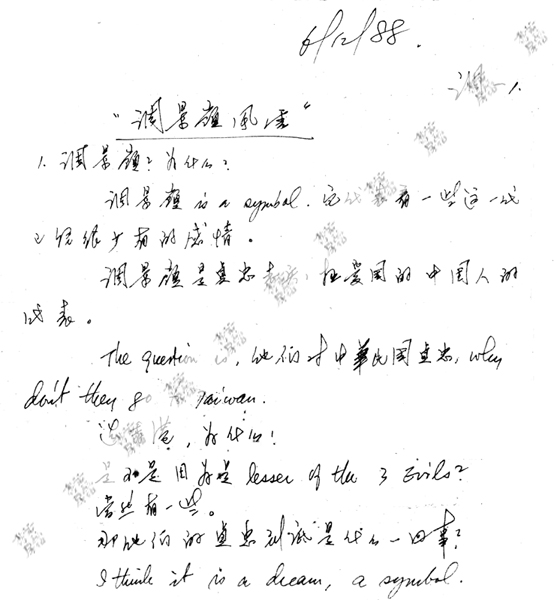 6/12/88.
1.
"调景嶺風雲"
1. 调景嶺? 为什么?
调景嶺 is a symbol. 它代表有一些这一代
已经很少有的感情。
调景嶺是真忠 爱国的中国人的
代表。
The question is, 他们对中華民国真忠, why
don't they go Taiwan.
为什么!
是不是因为是 lesser of the 3 Evils?
当然有一些。
那他们的真忠到底是什么一回事?
I think it is a dream, a symbol.